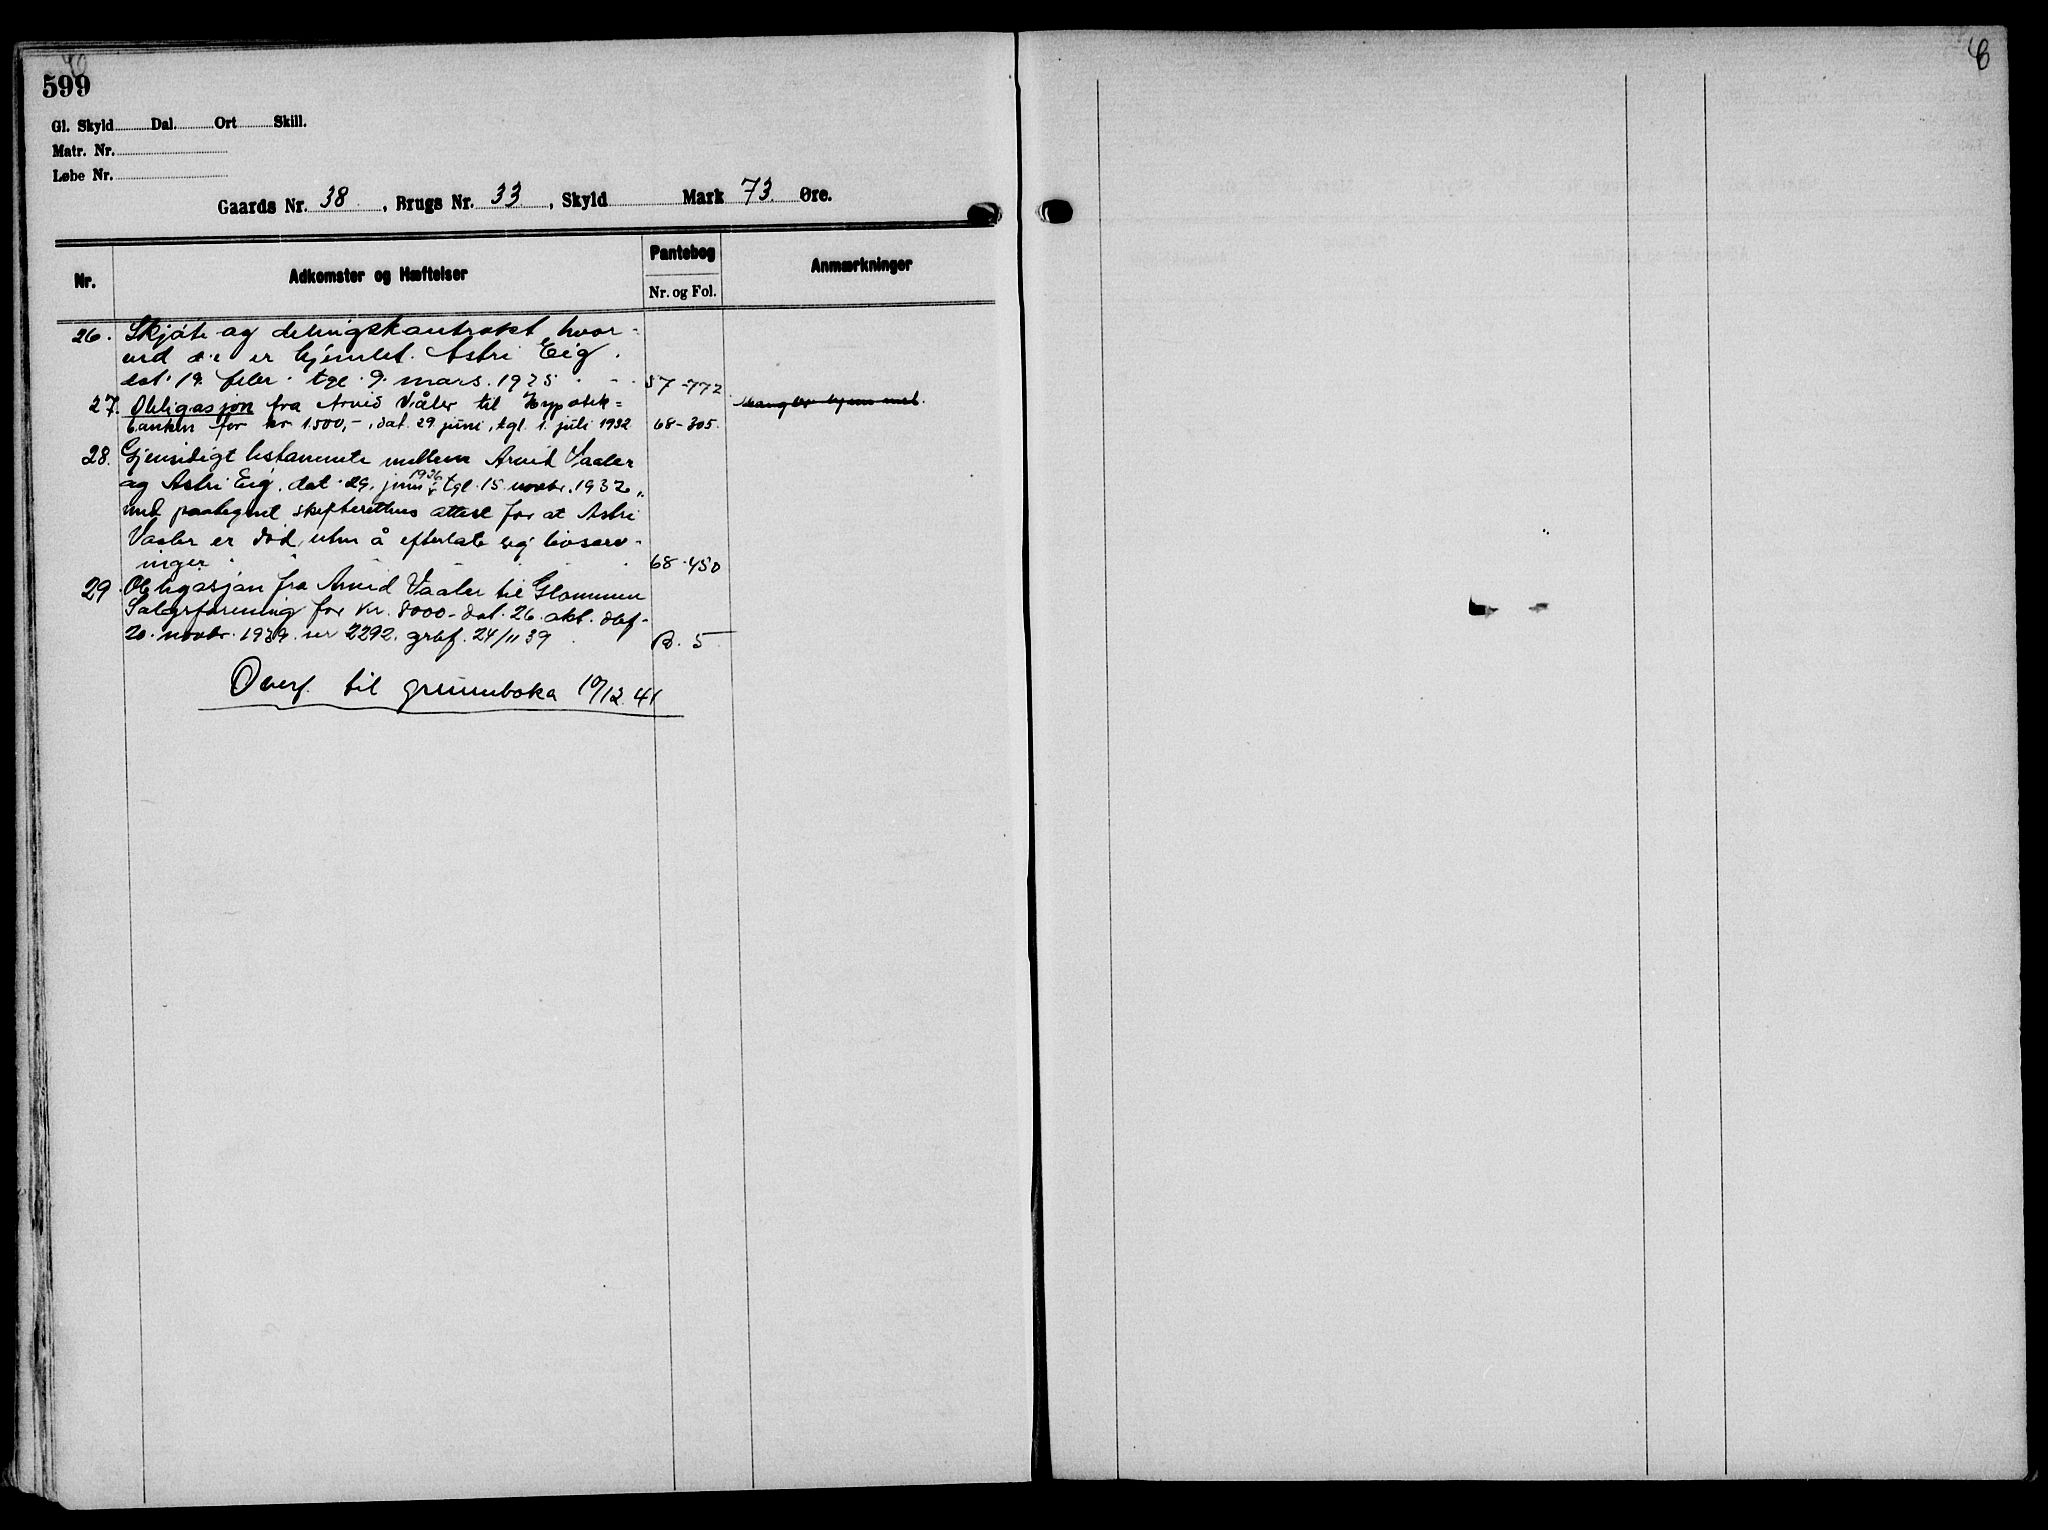 599
C
Gl. Skyld Dal. Ort Skill.
Matr. Nr.
Løbe Nr.
Gaards Nr. 38, Brugs Nr. 33, Skyld Mark 73 Øre.
Nr. Adkomster og Hæftelser Pantebog Anmærkninger
Nr. og Fol.
26. Skjøte og delingskontrakt, hvor-
ved er hjemlet Astri Eig.
dat. 19. febr. tgl. 9. mars. 1925 57-772
27. Obligasjon fra Arvid Våler til Hypotek-
banken for kr 1500,-, dat. 29 juni, tgl. 1. juli 1932 68-305. Mangler hjemmel.
28. Gjensidigt testamente mellem Arvid Vaaler
og Astri Eig, dat. 29. juni 1926 tgl. 15. novbr. 1932,
med paategnet skifterettens attest for at Astri
Vaaler er død uten å efterlate sig livsarv-
inger 68-450
29. Obligasjon fra Arvid Vaaler til Glommen
Salgsforening for kr. 8000- dat. 26. okt. dbf.
20. novbr. 1939. nr 2292. grbf. 24/11 39 B. 5
Overf. til grunnboka 10/12.41